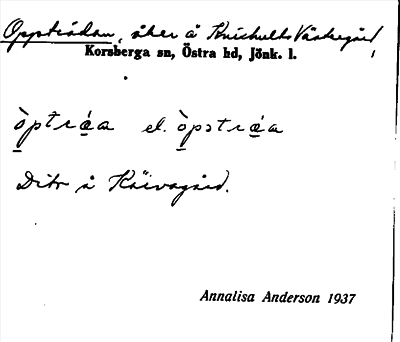 Oppströdan, åker å Knishults Västregård,
Korsberga sn, Östra hd, Jönk. l.
òptrǽa el. òpstrǽa
Dito å
Annalisa Anderson 1937